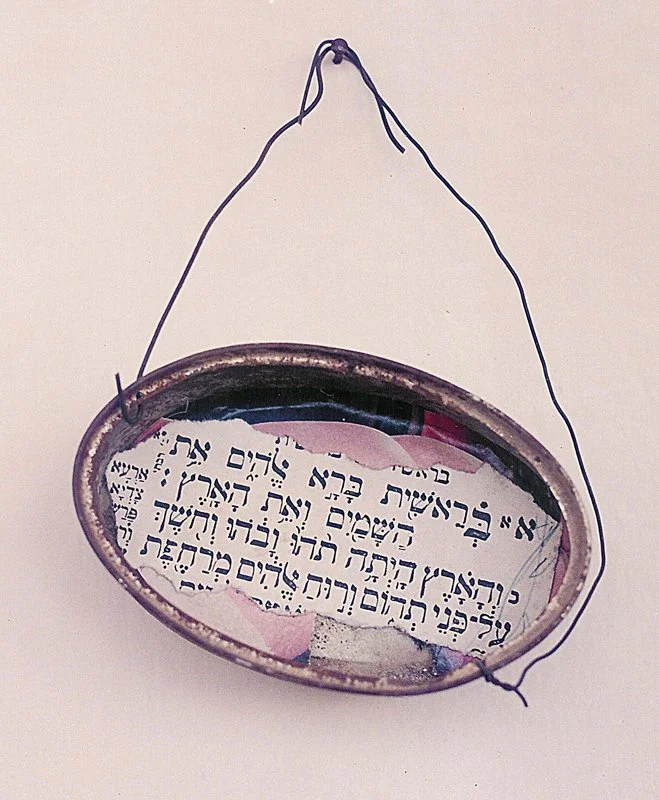 א א בְּרֵאשִׁית בָּרָא אֱלֹהִים אֵת
הַשָּׁמַיִם וְאֵת הָאָרֶץ׃
ב וְהָאָרֶץ הָיְתָה תֹהוּ וָבֹהוּ וְחֹשֶׁךְ
עַל־פְּנֵי תְהוֹם וְרוּחַ אֱלֹהִים מְרַחֶפֶת
אַרְעָא